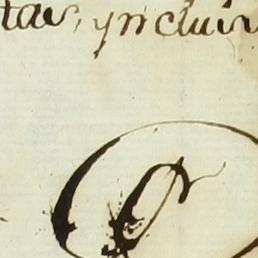 tas, ynclui